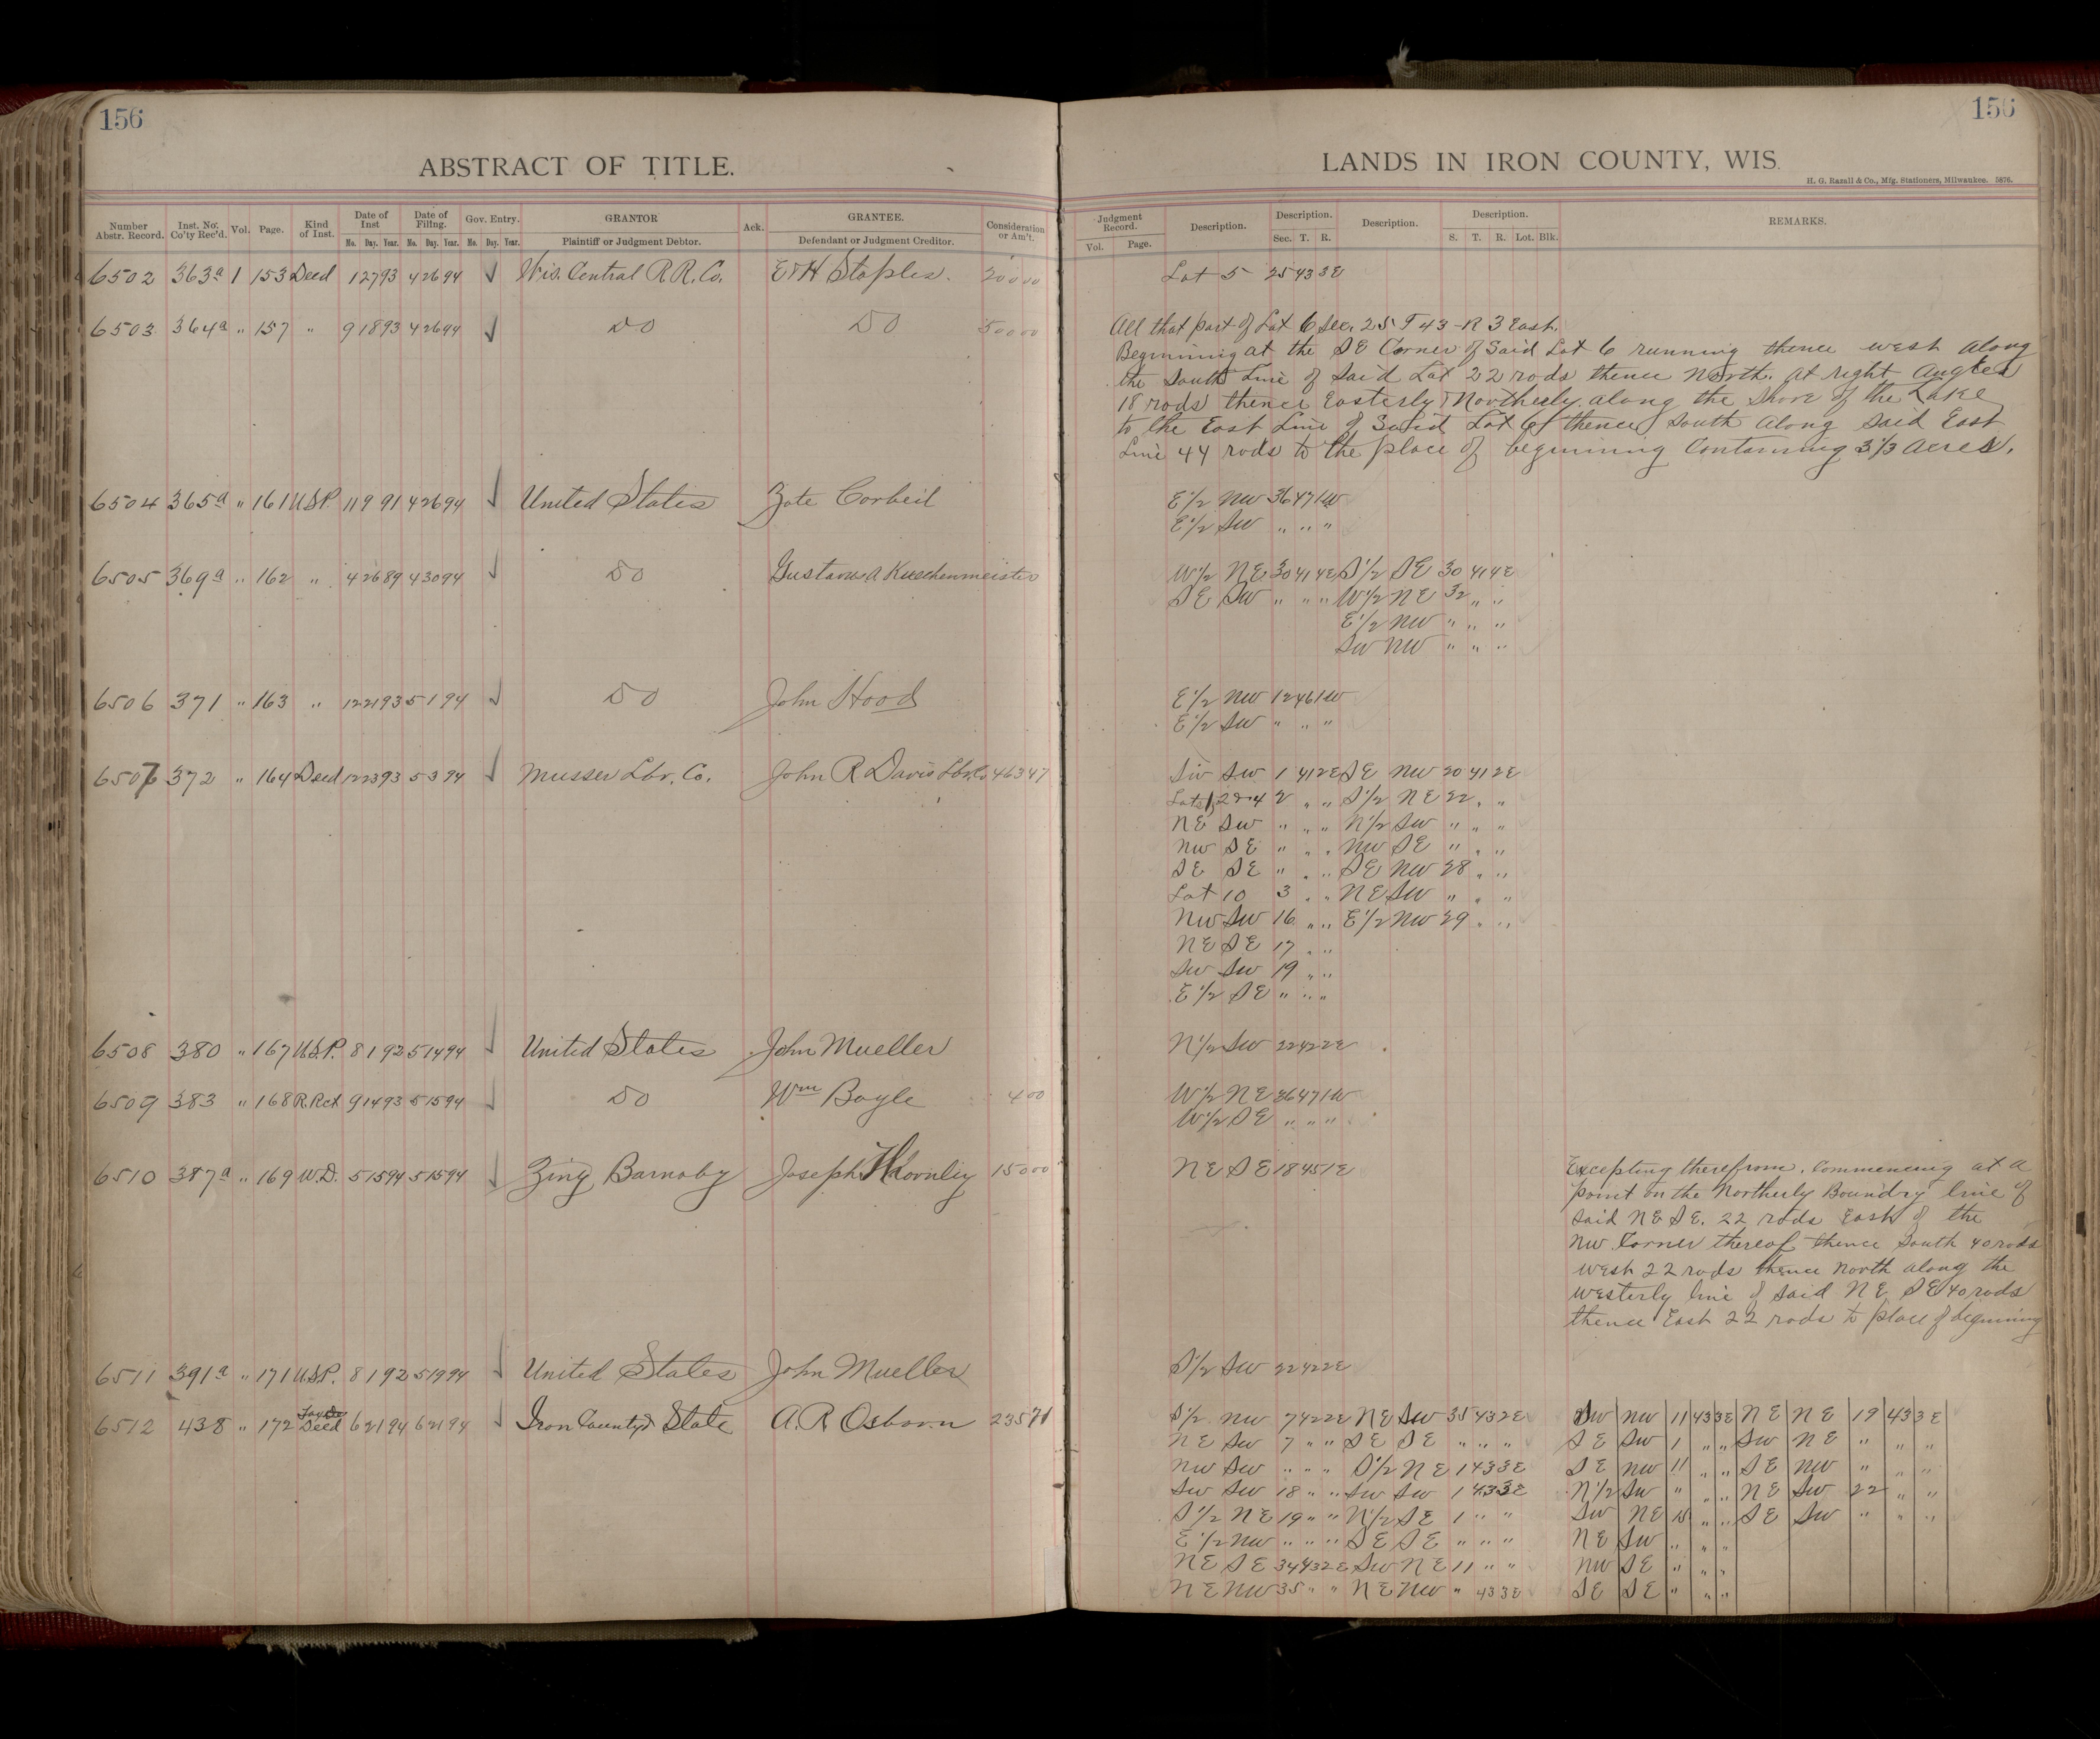 156
ABSTRACT OF TITLE.
Number Abstr. Record. Inst. No. Co'ty Rec'd. Vol. Page. Kind of Inst. Date of Inst Date of Filing. Gov. Entry. GRANTOR Ack. GRANTEE. Consideration or Am't.
Mo. Day. Year. Mo. Day. Year. Mo. Day. Year. Plaintiff or Judgment Debtor. Defendant or Judgment Creditor.
6502 363a 1 153 Deed 12793 42694 ✓ Wis. Central R.R. Co. E&H Staples. 20000
6503 364a " 157 " 91893 42694 ✓ DO DO 50000
6504 365a " 161 U.S.P. 11991 42694 ✓ United States Zote Corbeil
6505 369a " 162 " 42689 43094 ✓ DO Gustave A Kuschenmeister
6506 371 " 163 " 122193 5194 ✓ DO John Hood
6507 372 " 164 Deed 122393 5394 ✓ Musser Lbr. Co. John R Davis Lbr. Co 46347
6508 380 " 167 U.S.P. 8192 51494 ✓ United States John Mueller
6509 383 " 168 R.Rct 91493 51594 ✓ DO Wm Boyle 400
6510 387a " 169 W.D. 51594 51594 ✓ Zing Barnaby Joseph 15000
6511 391a " 171 U.S.P. 8192 51994 ✓ United States John Mueller
6512 438 " 172 Deed 62194 62194 ✓ Iron County & State A.R Osborn 23571
156
LANDS IN IRON COUNTY, WIS.
H. G. Razall & Co., Mfg. Stationers, Milwaukee. 5876.
Judgment Record. Description. Description. Description. Description. REMARKS.
Vol. Page. Sec. T. R. S. T. R. Lot. Blk.
Lot 5 25 43 3E
All that part of Lot 6 Sec. 25 T 43 - R 3 East.
Beginning at the SE Corner of Said Lot 6 running thence west along
the South Line of Said Lot 22 rods thence North. at right Angles
18 rods thence Easterly & Northerly along the Shore of the Lake
to the East Line of Said Lot 6 thence South along said East
Line 44 rods to the place of beginning Containing 3 1/3 acres.
E1/2 NW 36 47 1W
E1/2 SW " " "
W1/2 NE 30 41 4E S1/2 SE 30 41 4E
SE SW " " " W1/2 NE 32 " "
E1/2 NW " " "
SW NW " " "
E1/2 NW 12 46 1W
E1/2 SW " " "
SW SW 1 41 2E SE NW 20 41 2E
Lots 1, 2 & 4 2 " " S1/2 NE 22 " "
NE SW " " " N1/2 SW " " "
NW SE " " " NW SE " " "
SE SE " " " SE NW 28 " "
Lot 10 3 " " NE SW " " "
NW SW 16 " " E1/2 NW 29 " "
NE SE 17 " "
SW SW 19 " "
E1/2 SE " " "
N1/2 SW 22 42 2E
W1/2 NE 36 47 1W
W1/2 SE " " "
NE SE 18 45 1E
Excepting therefrom. Commencing at a
point on the Northerly Boundry line of
said NE SE. 22 rods East of the
NW Corner thereof thence South 40 rods
west 22 rods thence North along the
westerly line of said NE SE 40 rods
thence East 22 rods to place of beginning
S1/2 SW 22 42 2E
S1/2 NW 7 42 2E NE SW 35 43 2E SW NW 11 43 3E NE NE 19 43 3E
NE SW 7 " " SE SE " " " SE SW 1 " " SW NE " " "
NW SW " " " S1/2 NE 1 43 3E SE NW 11 " " SE NW " " "
SW SW 18 " " SW SW 1 43 3E N1/2 SW " " " NE SW 22 " "
S1/2 NE 19 " " N1/2 SE 1 " " SW NE 15 " " SE SW " " "
E1/2 NW " " " SE SE " " " NE SW " " "
NE SE 34 43 2E SW NE 11 " " NW SE " " "
NE NW 35 " " NE NW " 43 3E SE SE " " "